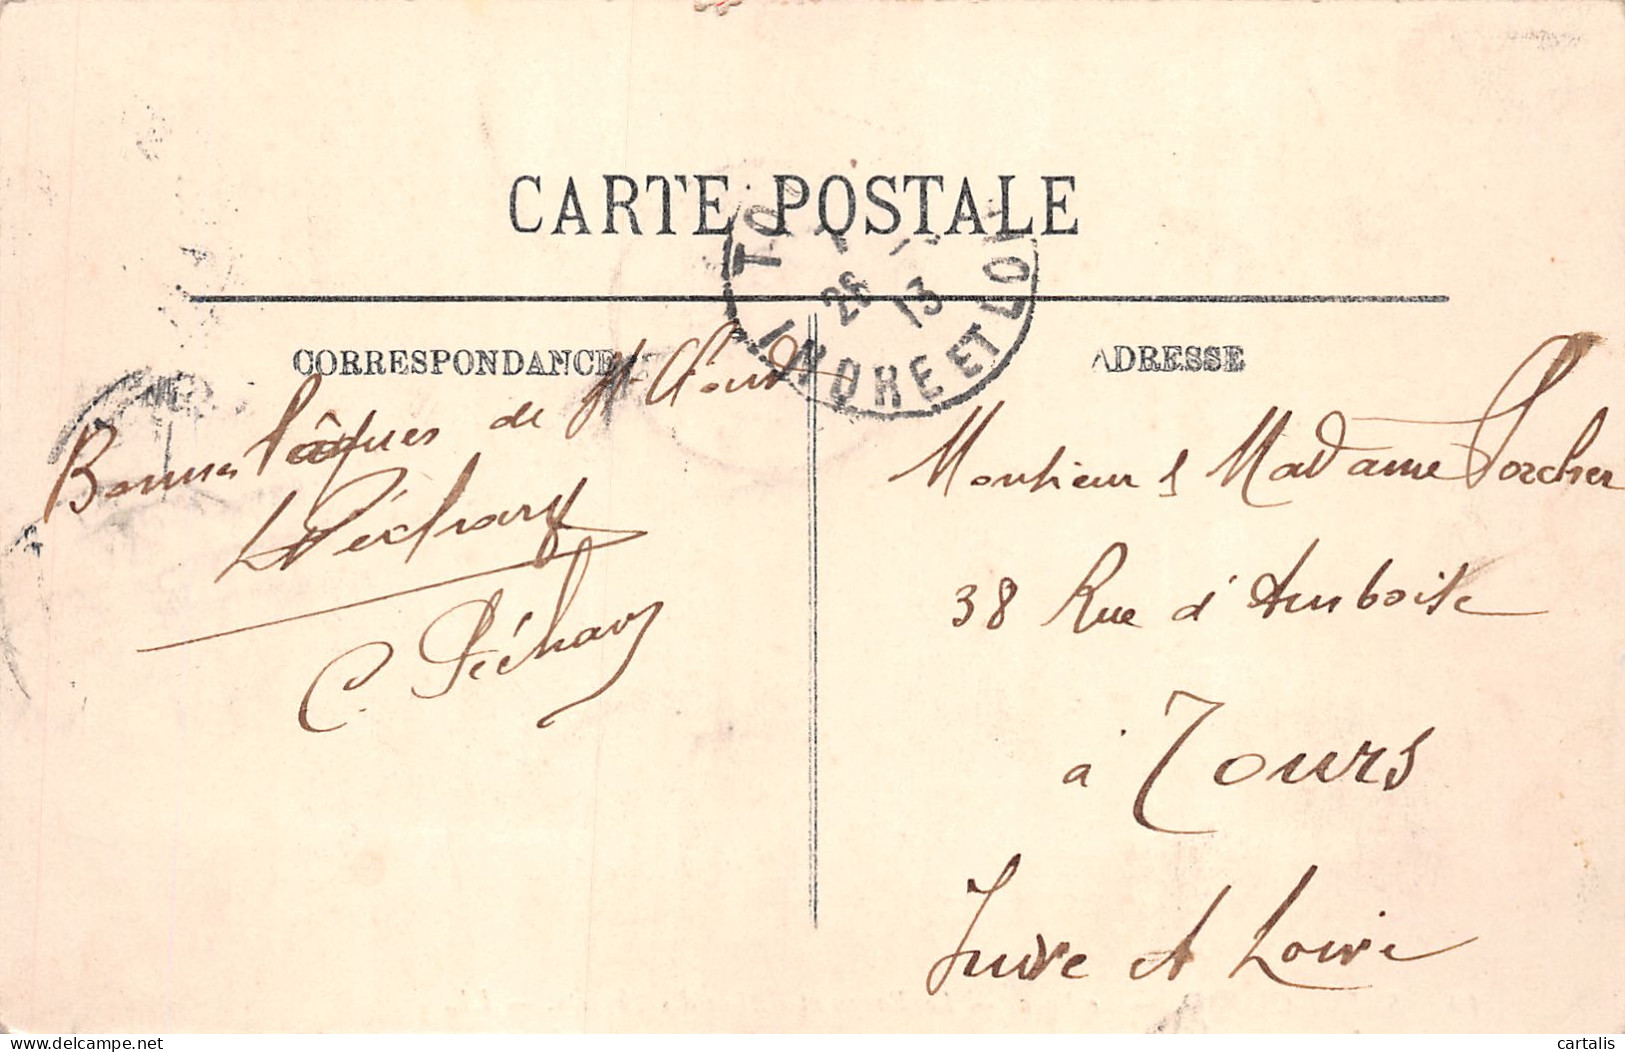 CARTE POSTALE
TO
26 13
INDRE ET LOI
CORRESPONDANCE
Bonnes Pâques de St Cloud
C. Péchary
ADRESSE
Monsieur & Madame Porcher
38 Rue d'Amboise
à Tours
Indre et Loire
www.delcampe.net
cartalis